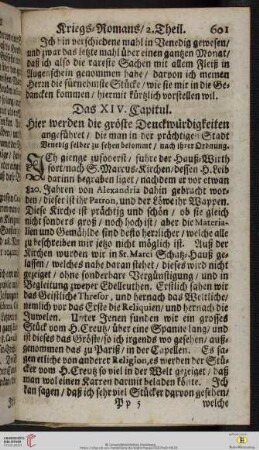 Kriegs-Romans/2. Theil. 601
Ich bin verschiedene mahl in Venedig gewesen/
und zwar das letzte mahl über einen gantzen Monat/
daß ich also die rareste Sachen mit allem Fleiß in
Augenschein genommen habe/ darvon ich meinen
Herrn die fürnehmste Stücke/ wie sie mir in die Ge-
dancken kommen/ hiermit kürtzlich vorstellen wil.
Das XIV. Capitul.
Hier werden die gröste Denckwürdigkeiten
angeführet/ die man in der prächtigen Stadt
Venedig selber zu sehen bekommt/ nach ihrer Ordnung.
ICh gienge zuvorerst/ fuhre der Hauß-Wirth
fort/nach S. Marcus-Kirchen/dessen H. Leib
darinn begraben liget/ nachdem er vor etwan
820. Jahren von Alexandria dahin gebracht wor-
den/ dieser ist ihr Patron, und der Löw ihr Wappen.
Diese Kirche ist prächtig und schön/ ob sie gleich
nicht sonders groß/ noch hoch ist/ aber die Materia-
lien und Gemählde sind desto herzlicher/ welche alle
zu beschreiben mir jetzo nicht möglich ist. Auß der
Kirchen wurden wir in St. Marci Schatz-Hauß ge-
lassen/ welches nahe daran stehet/ dieses wird nicht
gezeiget/ ohne sonderbare Vergünstigung/ und in
Begleitung zweyer Edelleuthen. Erstlich sahen wir
das Geistliche Thresor, und hernach das Weltliche/
nemlich vor das Erste die Reliquien/ und hernach die
Juwelen. Unter Jenen funden wir ein grosses
Stück vom H. Creutz/ über eine Spanne lang/ und
ist dieses das Gröste/ so ich irgends wo gesehen/ auß-
genommen das zu Pariß/ in der Capellen. Es sa-
gen etliche von anderer Religion, es werden der Stü-
cker vom H. Creutz so viel in der Welt gezeiget/ daß
man wol einen Karren darmit beladen könte. Ich
kan sagen/ daß ich sehr viel Stücker darvon gesehen/
Pp 5 welche